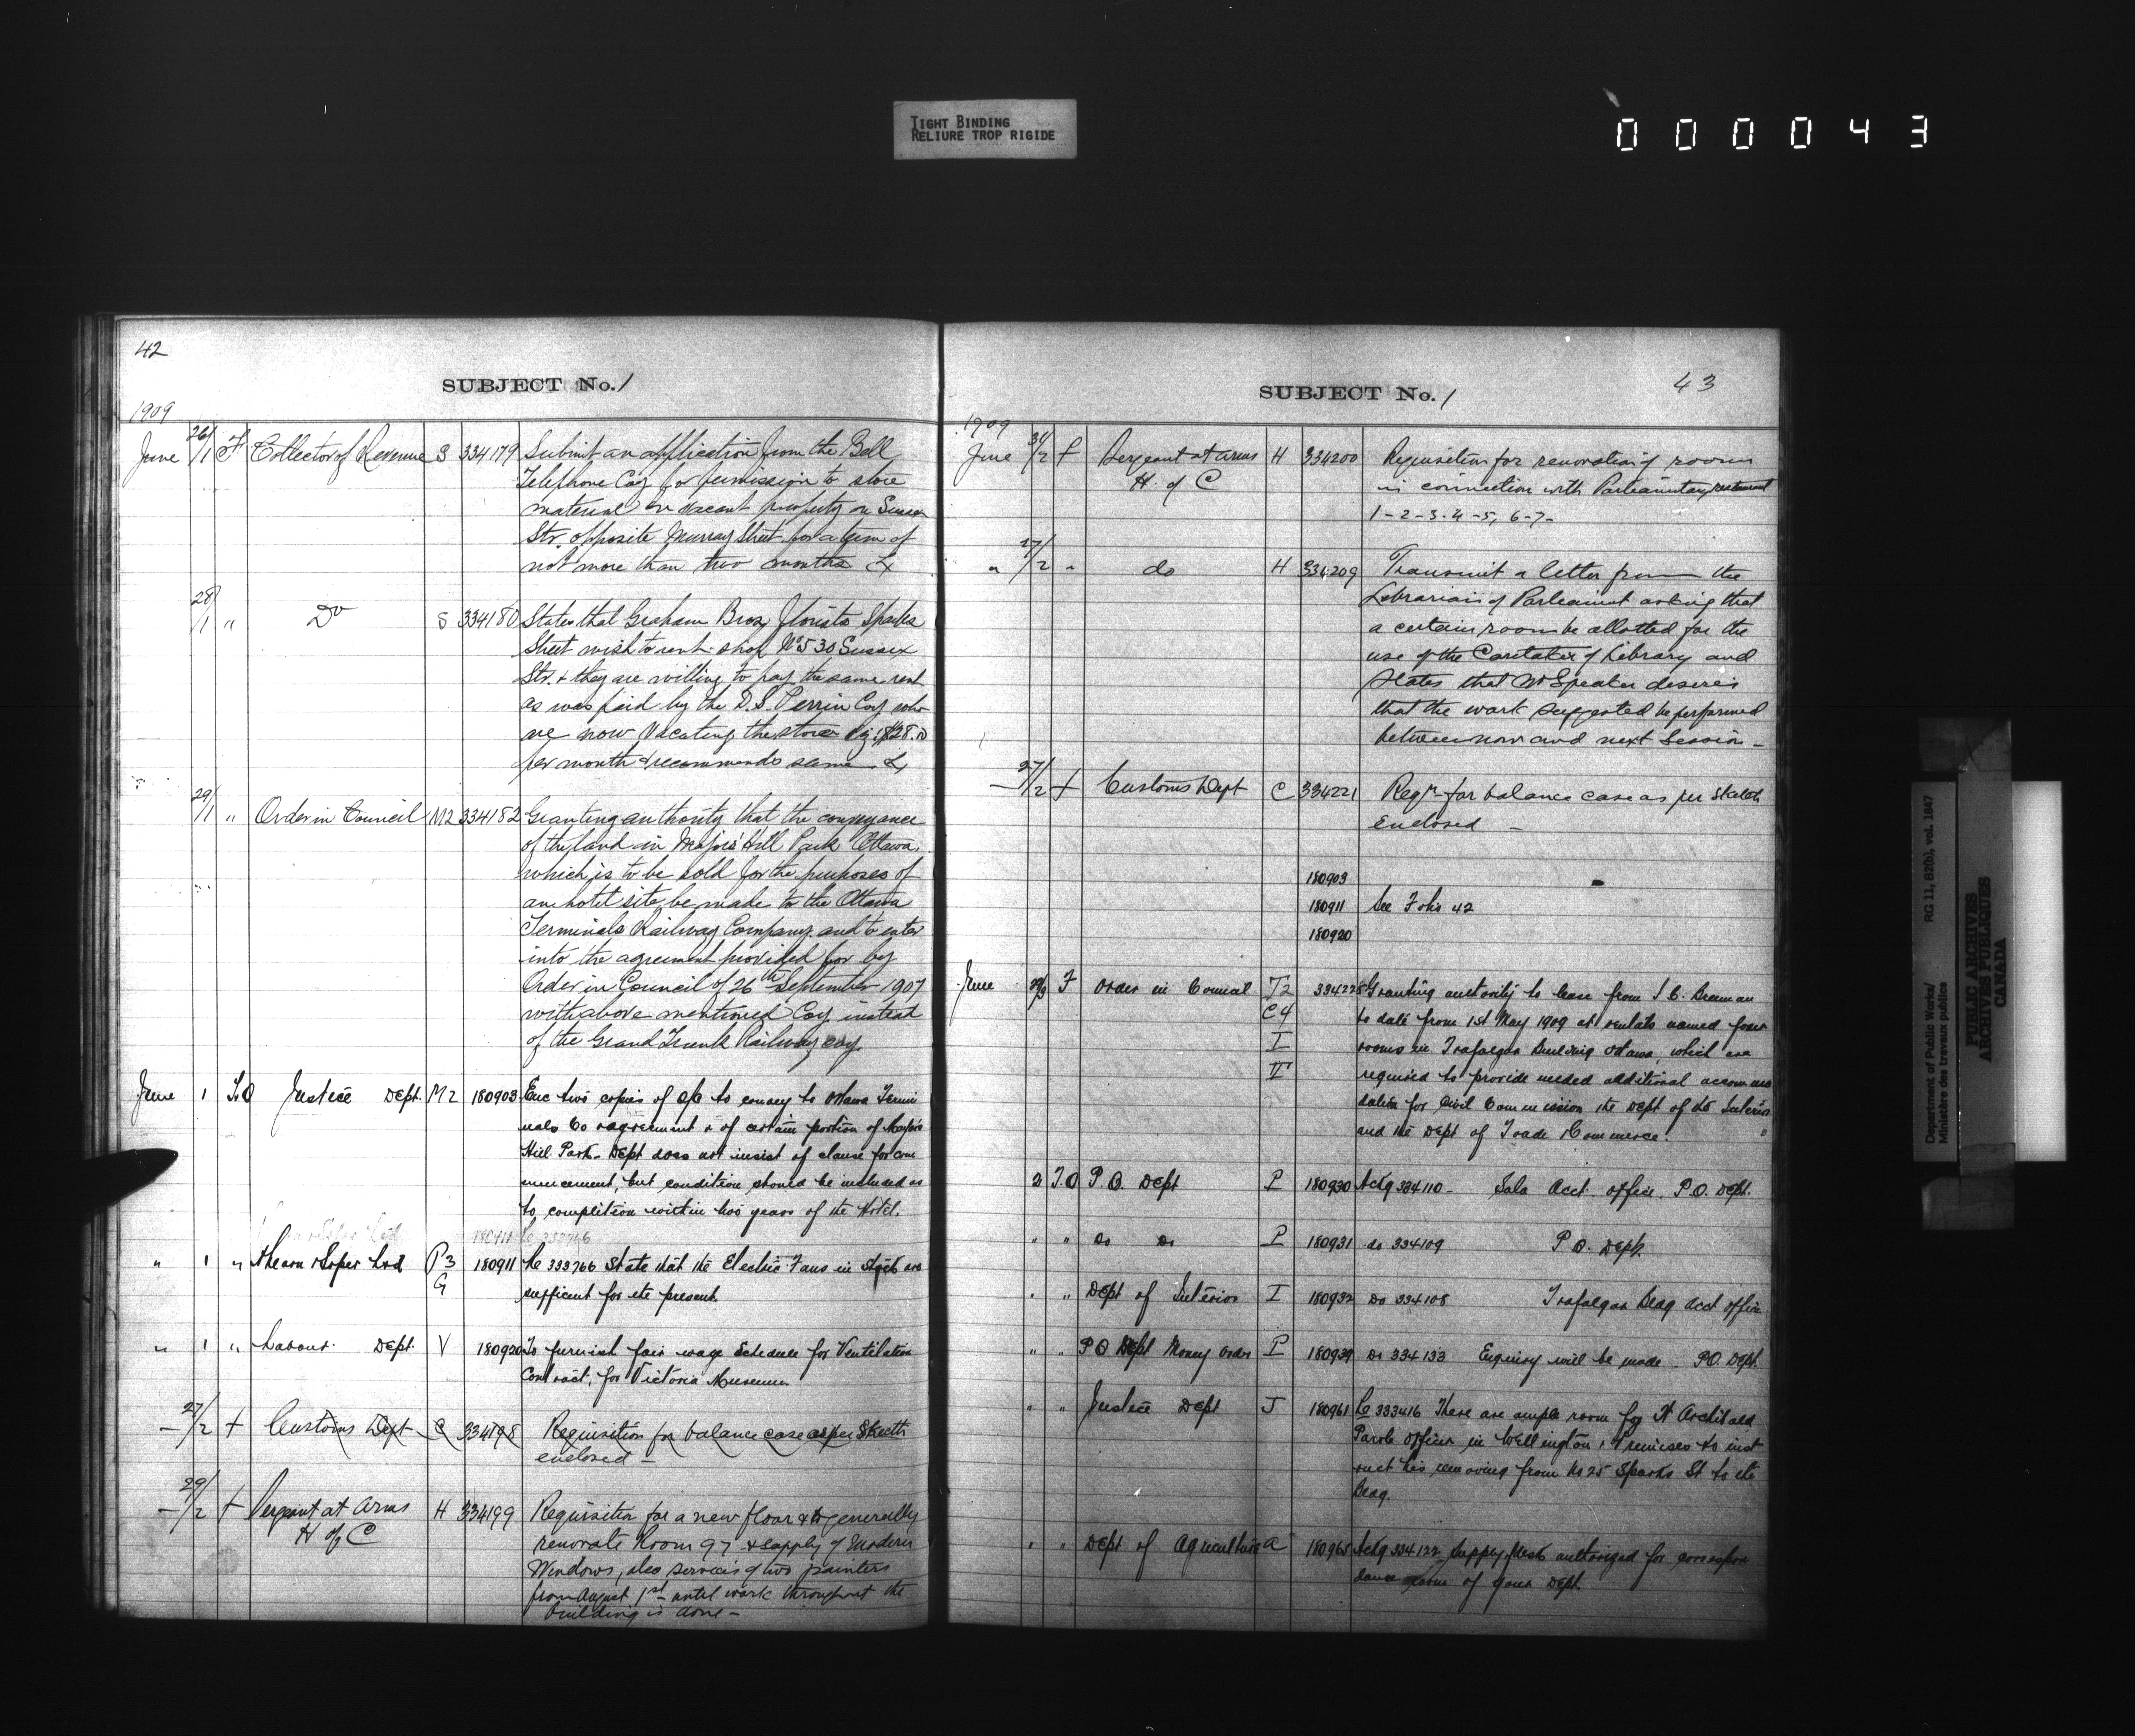 TIGHT BINDING
RELIURE TROP RIGIDE
000043
42
SUBJECT No. 1
1909
June 26/1 F Collector of Revenue S 334179 Submit an application from the Bell
Telephone Coy for permission to store
material on vacant property on Sussex
Str. opposite Murray Street for a term of
not more than two months &
28/1 " Do S 334180 States that Graham Bros, florists Sparks
Street wish to rent shop No 530 Sussex
Str. & they are willing to pay the same rent
as was paid by the D. S. Perrin Coy who
are now vacating the store viz: $28.00
per month & recommends same &
29/1 " Order in Council M2 334182 Granting authority that the conveyance
of the land in Major's Hill Park Ottawa,
which is to be sold for the purposes of
an hotel site, be made to the Ottawa
Terminals Railway Company and to enter
into the agreement provided for by
Order in Council of 26th September 1907
with above mentioned Coy. instead
of the Grand Trunk Railway Coy.
June 1 T.O Justice Dept. M2 180903 Enc two copies of O/C to convey to Ottawa Termi
nals Co agreement & of certain portion of Majors
Hill Park. Dept does not insist of clause for com
mencement, but condition should be included as
to completion within two years of the Hotel.
" 1 " Ahearn & Soper Ltd P3 180911 Re 333766 State that the Electric Fans in stock are
G sufficient for the present.
" 1 " Labour Dept. V 180920 To furnish fair wage Schedule for Ventilation
Contract, for Victoria Museum
— 27/2 + Customs Dept C 334198 Requisition for balance case as per Sketch
enclosed —
— 29/2 + Sergeant at Arms H 334199 Requisition for a new floor & to generally
H of C renovate Room 97 & supply of modern
Windows, also services of two painters
from August 1st until work throughout the
building is done —
SUBJECT No. 1
43
1909
June /2 f Sergeant at Arms H 334200 Requisition for renovation of rooms
H. of C in connection with Parliamentary restaurant
1-2-3-4-5, 6-7-
" 27/2 " do H 334209 Transmit a letter from the
Librarian of Parliament asking that
a certain room be allotted for the
use of the Caretaker of Library and
states that Mr Speaker desires
that the work suggested be performed
between now and next Session —
— 27/2 + Customs Dept C 334221 Reqn for balance case as per Sketch
Enclosed —
180903
180911 See Folio 42
180920
June F Order in Council T2 334228 Granting authority to lease from
C4 to date from 1st May 1909 at rentals named four
I rooms in Trafalgar Building Ottawa, which are
II required to provide needed additional accommo
dation for Civil Commission the Dept of the Interior
and the Dept of Trade & Commerce.
2 T.O P.O. Dept P 180930 Ackg 334110 — Acct. office P.O. Dept.
" " do do P 180931 do 334109 P.O. Dept.
" " Dept of Interior I 180932 Do 334108 Trafalgar Bldg Acct office
" " P O Dept Money Order P 180939 Do 334133 Enquiry will be made. P.O. Dept.
" " Justice Dept J 180961 Re 333416 There are ample room for Archibald
Parole Officer in Wellington, Premises to inst
ruct his removing from No 25 Sparks St to the
Bldg.
" " Dept of Agriculture A 180965 Ackg 334122 Supply desk authorized for correspon
dance room of your Dept.
Department of Public Works/
Ministère des travaux publics
RG 11, B2(b), vol. 1847
PUBLIC ARCHIVES
ARCHIVES PUBLIQUES
CANADA